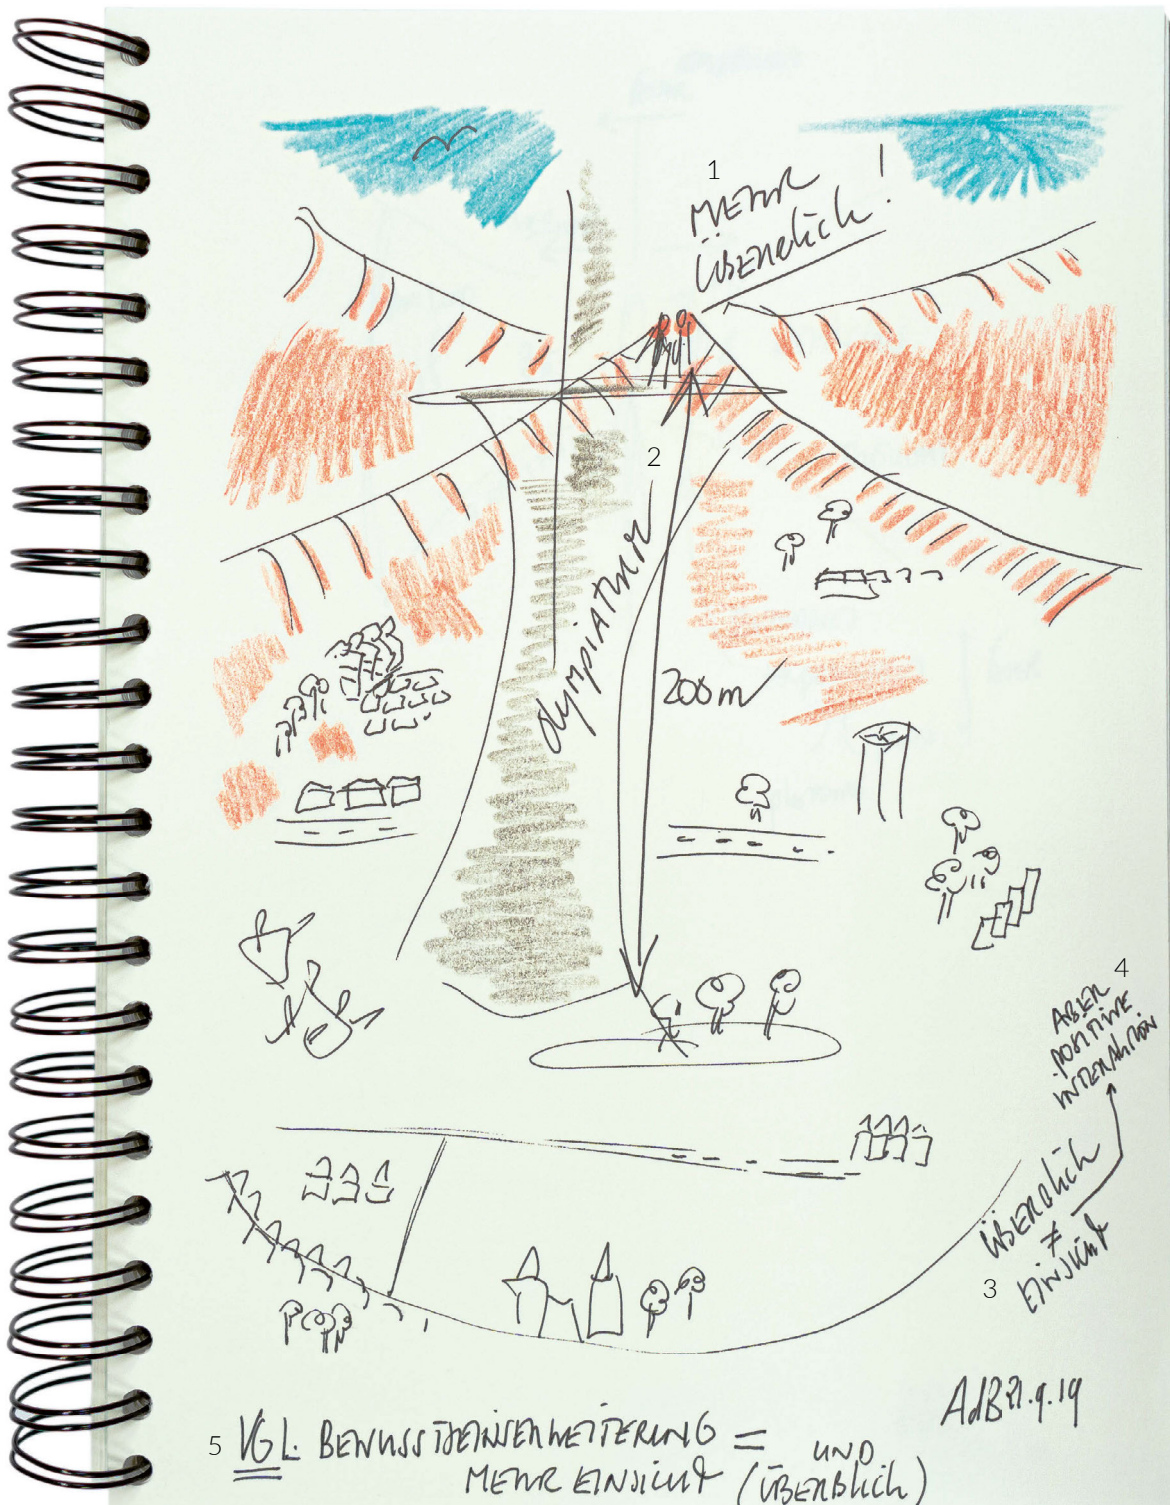 1
MEHR
ÜBERBLICK!
2
OLYMPIATURM
200m
4
ABER
POSITIVE
INTERAKTION
ÜBERBLICK
≠
EINSICHT
3
AdB 21.9.19
5 VGL. BEWUSSTSEINSERWEITERUNG = UND
MEHR EINSICHT (ÜBERBLICK)